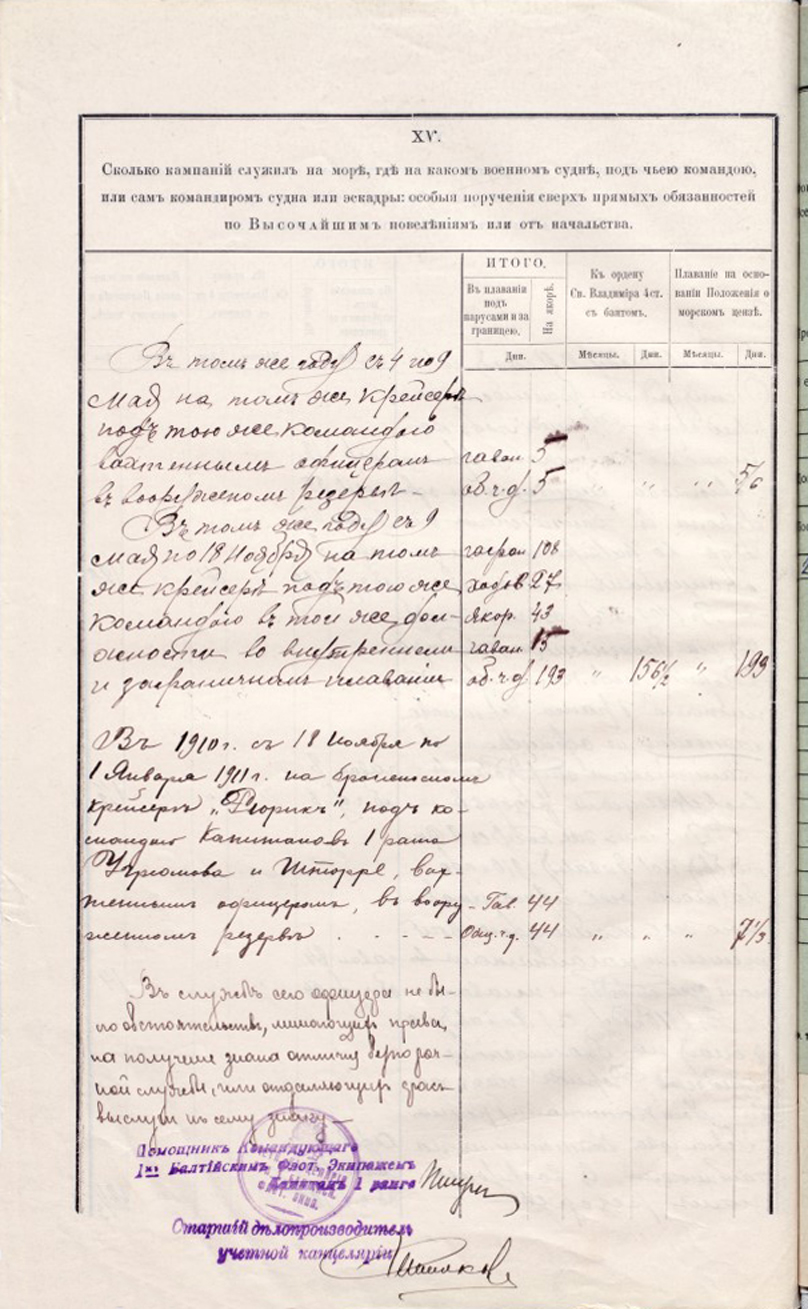 XV.
Сколько кампаній служилъ на морѣ, гдѣ на какомъ военномъ суднѣ, подъ чьею командою,
или самъ командиромъ судна или эскадры: особыя порученія сверхъ прямыхъ обязанностей
по Высочайшимъ повелѣніямъ или отъ начальства.
ИТОГО.
Въ плаваніи подъ парусами и за границею.
На якорѣ.
Къ ордену Св. Владиміра 4 ст. съ бантомъ.
Плаваніе на основаніи Положенія о морскомъ цензѣ.
Дни. Мѣсяцы. Дни. Мѣсяцы. Дни.
Въ томъ же году съ 4 по 9
Мая на томъ же крейсерѣ
подъ тою же командою
вахтеннымъ офицеромъ гаван. 5
въ вооруженомъ резервѣ – об. ч. д. 5 " " " 5/6
Въ томъ же году съ 9
Мая по 18 Ноября на томъ загран. 108
же крейсерѣ подъ тою же ходов 27
командою въ той же дол- якор. 43
жности во внутреннемъ гаван. 15
и заграничномъ плаваніи об. ч. д. 193 " 156½ " 193
Въ 1910 г. съ 18 Ноября по
1 Января 1911 г. на броненосномъ
крейсерѣ „Рюрикъ", подъ ко-
мандою Капитановъ 1 ранга
Угрюмова и Шторре, вах-
теннымъ офицеромъ, въ воору- Гав. 44
женномъ резервѣ . - - - - Общ. ч. д. 44 " " " 7⅓
Въ службѣ сего офицера не бы-
ло обстоятельствъ, лишающихъ права,
на полученіе знака отличія безпороч-
ной службы, или отдаляющихъ срокъ
выслуги къ сему знаку
Помощникъ Командующаго
1мъ Балтійскимъ Флот. Экипажемъ
Капитанъ 1 ранга
Старшій дѣлопроизводитель
учетной канцеляріи